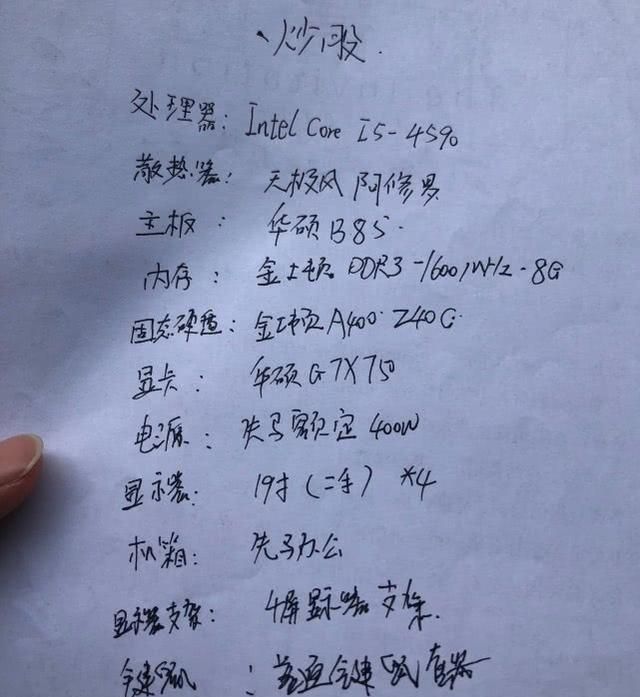 炒股
处理器：Intel Core I5-4590
散热器：无极风 阿修罗
主板：华硕B85
内存：金士顿 DDR3-1600MHz-8G
固态硬盘：金士顿A400 240G
显卡：华硕GTX750
电源：先马额定400W
显示器：19寸（二手）*4
机箱：先马办公
显示器支架：4屏显示器支架